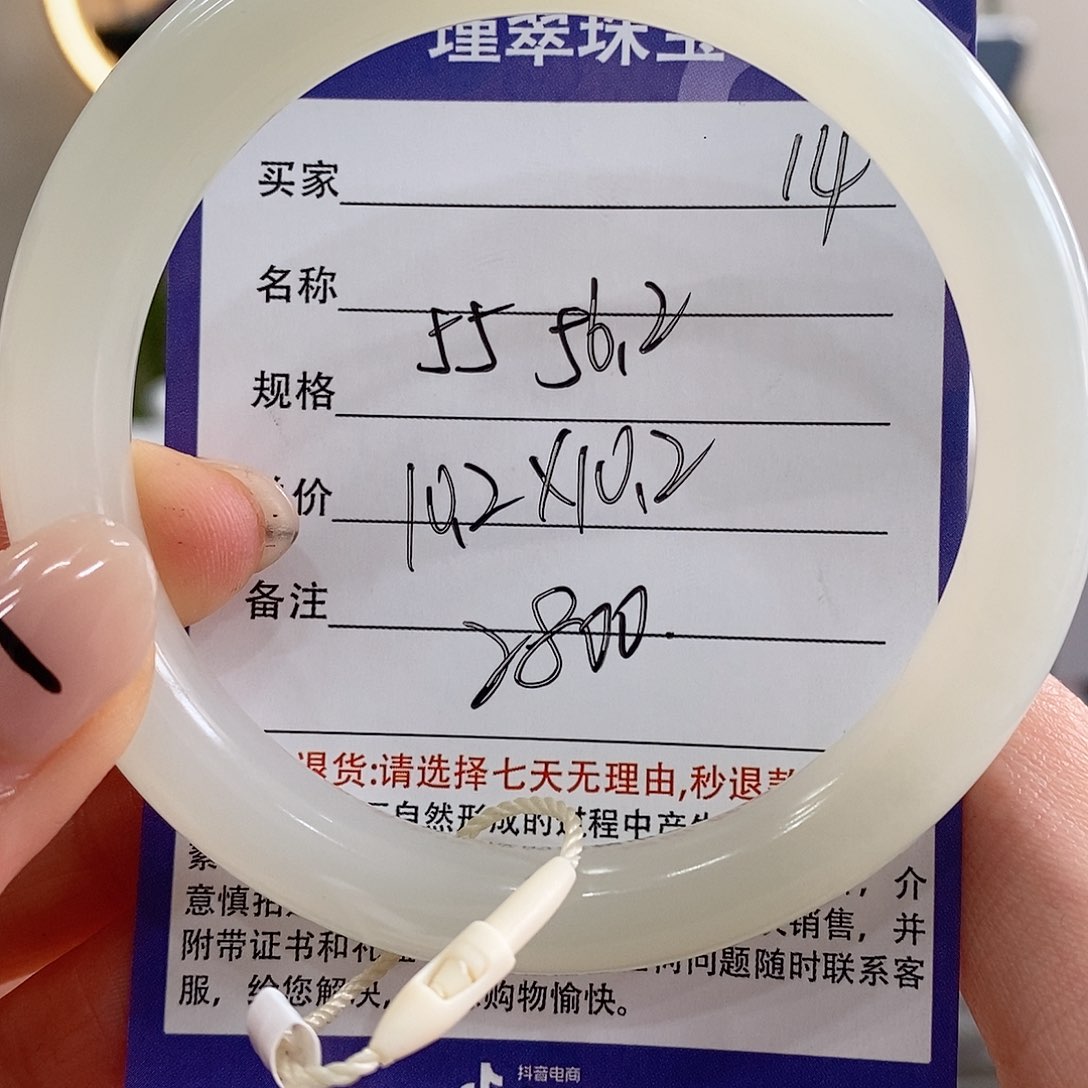 理翠珠宝
买家 14
名称
55 56.2
规格
价 10.2×10.2
备注 2800.
退货:请选择七天无理由,秒退款
自然形成的过程中产
意慎拍
销售，并
附带证书和礼
问题随时联系客
服，给您解决, 购物愉快。
抖音电商